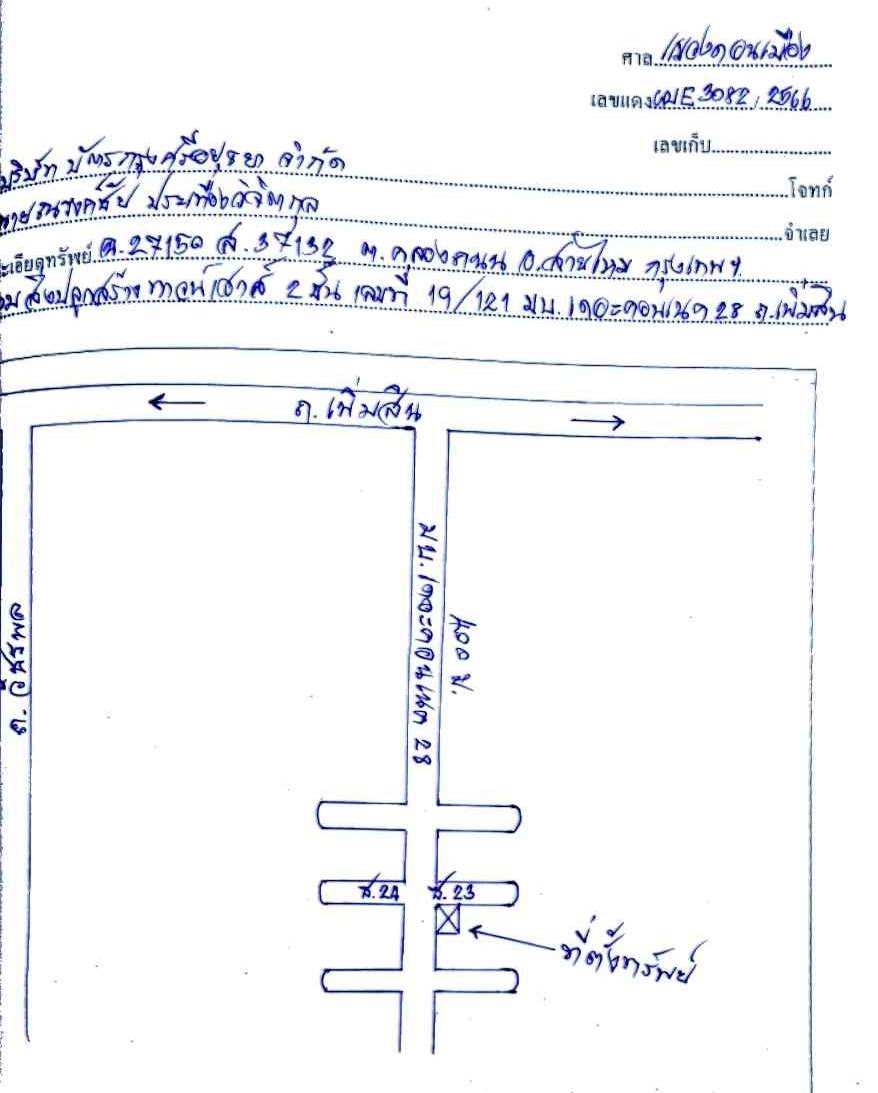 ศาล แขวงดอนเมือง
เลขแดง ผบE 3082 / 2566
เลขเก็บ
บริษัท บัตรกรุงศรีอยุธยา จำกัด โจทก์
นาย ประเทืองวิจิตรกุล จำเลย
ละเอียดทรัพย์ ฉ. 27150 ส. 37132 ต. คลองถนน อ. สายไหม กรุงเทพฯ
สิ่งปลูกสร้าง ทาวน์เฮาส์ 2 ชั้น เลขที่ 19/121 มบ. เดอะคอนเนค 28 ถ. เพิ่มสิน
ถ. เพิ่มสิน
มบ. เดอะคอนเนค 28
400 ม.
ถ. วัชรพล
ซ. 24 ซ. 23
ที่ตั้งทรัพย์